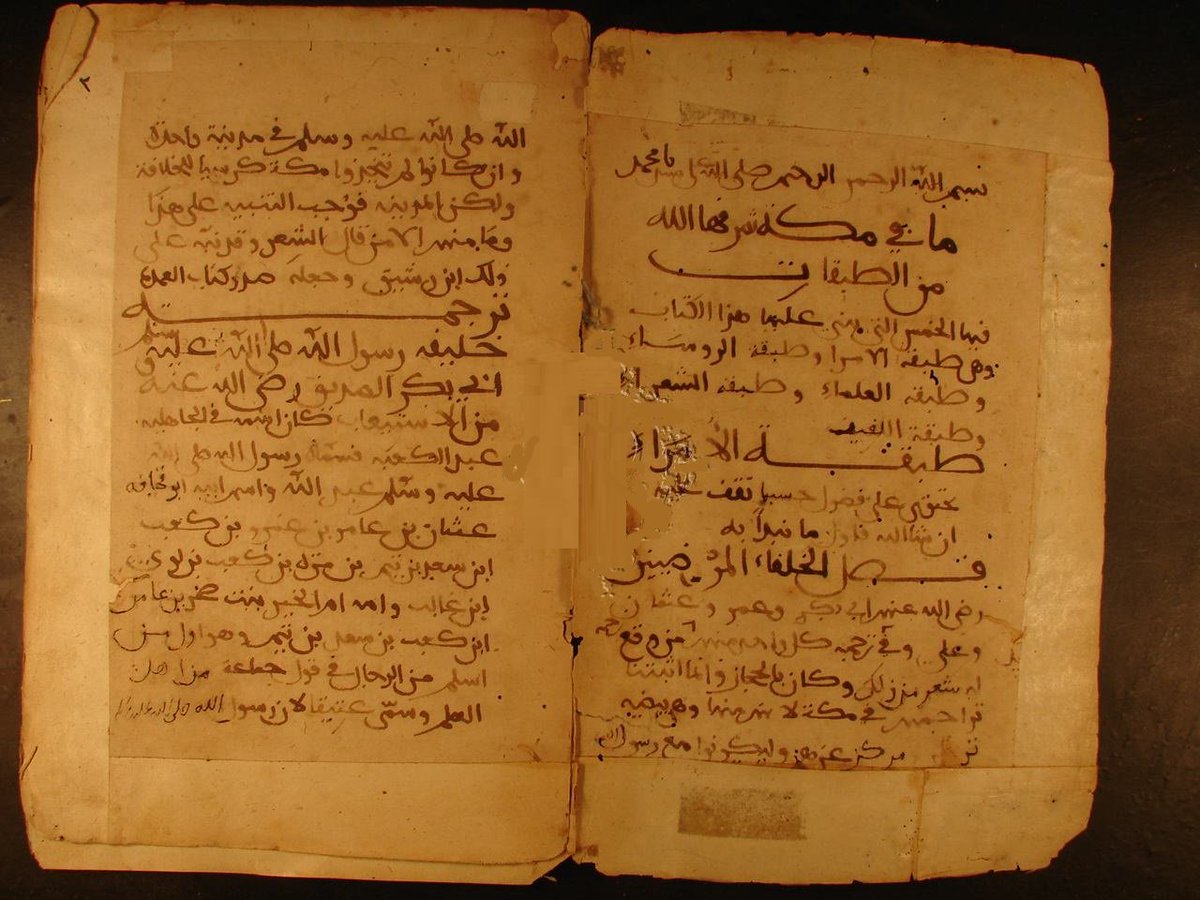 بسم الله الرحمن الرحيم صلى الله على سيدنا محمد
ما في مكة شرفها الله
من الطبقات
فيها الخمس التي بني عليها هذا الكتاب
وهي طبقة الامرا وطبقة الرومساء
وطبقة العلماء وطبقة الشعرا
وطبقة اللفيف
طبقة الأمراء
تحتوي على فصول حسبما تقف عليه
ان شاالله فاول ما نبدأ به
فصل الخلفاء المرضيين
رضي الله عنهم ابي بكر وعمر وعثمان
وعلي وفي ترجمة كل واحد منهم من وقع
له شعر من ذلك وكان بالحجاز وانما اثبتنا
تراجمهم في مكة لانهم منها وهي بيضة
مركز عزهم وليكونوا مع رسول الله
٢
الله صلى الله عليه وسلم في مدينة واحدة
وان كانوا لم يتخذوا مكة كرسيا للخلافة
ولكن المدينة فوجب التنبيه على هذا
وما منهم الا من قال الشعر وقد نبه على
ذلك ابن رشيق وجعله صدر كتاب العمدة
ترجمة
خليفة رسول الله صلى الله عليه وسلم
ابي بكر الصديق رضي الله عنه
من الاستيعاب كان اسمه في الجاهلية
عبد الكعبة فسماه رسول الله صلى الله
عليه وسلم عبد الله واسم ابيه ابو قحافة
عثمان بن عامر بن عمرو بن كعب
ابن سعد بن تيم بن مرة بن كعب بن لوي
ابن غالب وامه ام الخير بنت صخر بن عامر
ابن كعب بن سعد بن تيم وهو اول من
اسلم من الرجال في قول جماعة من اهل
العلم وسمى عتيقا لان رسول الله صلى الله عليه وسلم